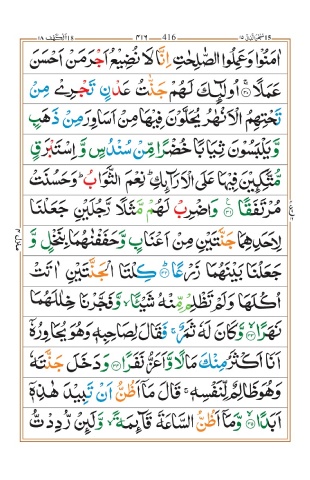 سبحن الذی ۱۵ ۴۱۶ 416 الکہف ۱۸
اٰمَنُوْا وَعَمِلُوا الصّٰلِحٰتِ اِنَّا لَا نُضِيْعُ اَجْرَ مَنْ اَحْسَنَ
عَمَلًا ۚ‏﴿۳۰﴾ اُولٰٓٮِٕكَ لَهُمْ جَنّٰتُ عَدْنٍ تَجْرِىْ مِنْ
تَحْتِهِمُ الْاَنْهٰرُ يُحَلَّوْنَ فِيْهَا مِنْ اَسَاوِرَ مِنْ ذَهَبٍ
وَّيَلْبَسُوْنَ ثِيَابًا خُضْرًا مِّنْ سُنْدُسٍ وَّاِسْتَبْرَقٍ
مُّتَّكِـِٕيْنَ فِيْهَا عَلَى الْاَرَآٮِٕكِ‌ؕ نِعْمَ الثَّوَابُ ؕ وَحَسُنَتْ
مُرْتَفَقًا ﴿۳۱﴾ وَاضْرِبْ لَهُمْ مَّثَلًا رَّجُلَيْنِ جَعَلْنَا
لِاَحَدِهِمَا جَنَّتَيْنِ مِنْ اَعْنَابٍ وَّحَفَفْنٰهُمَا بِنَخْلٍ وَّ
جَعَلْنَا بَيْنَهُمَا زَرْعًا ؕ ﴿۳۲﴾ كِلْتَا الْجَنَّتَيْنِ اٰتَتْ
اُكُلَهَا وَلَمْ تَظْلِمْ مِّنْهُ شَيْـًٔا ۙ وَّفَجَّرْنَا خِلٰلَهُمَا
نَهَرًا ۙ ﴿۳۳﴾ وَّكَانَ لَهٗ ثَمَرٌ‌ ۚ فَقَالَ لِصَاحِبِهٖ وَهُوَ يُحَاوِرُهٗۤ
اَنَا اَكْثَرُ مِنْكَ مَالًا وَّاَعَزُّ نَفَرًا ﴿۳۴﴾ وَدَخَلَ جَنَّتَهٗ
وَهُوَ ظَالِمٌ لِّنَفْسِهٖ‌ ۚ قَالَ مَاۤ اَظُنُّ اَنْ تَبِيْدَ هٰذِهٖۤ
اَبَدًا ۙ ﴿۳۵﴾ وَّمَاۤ اَظُنُّ السَّاعَةَ قَآٮِٕمَةً ۙ وَّلَٮِٕنْ رُّدِدْتُّ